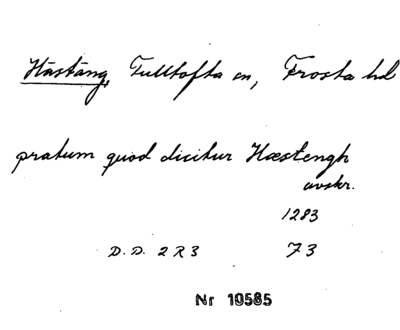 Hästäng, Tulltofta sn, Frosta hd
pratum quod dicitur Hæstengh
avskr.
1283
D.D. 2 R 3 73
Nr 10585